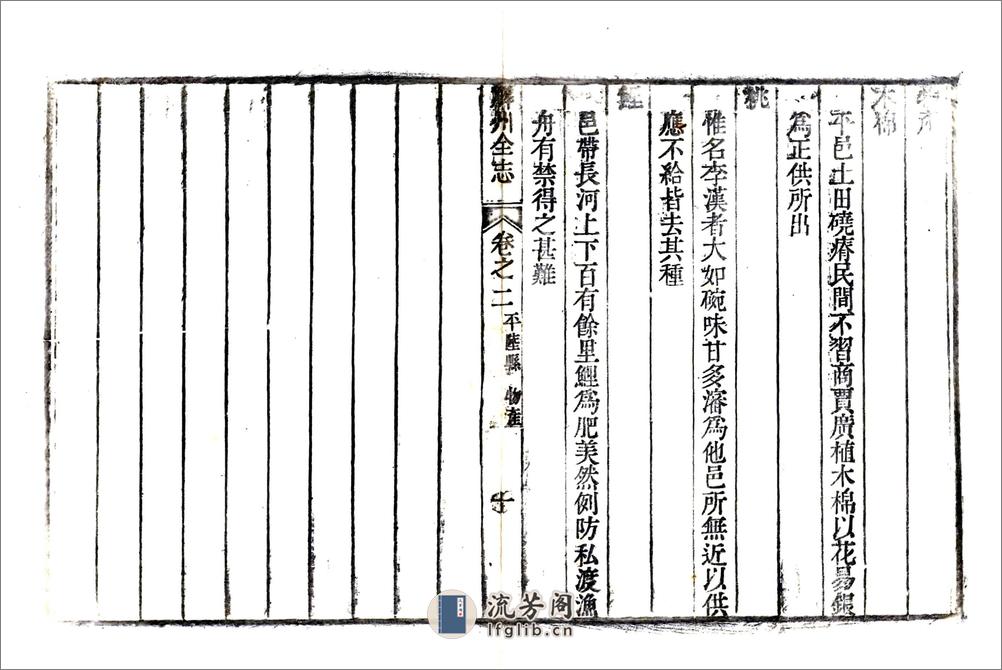 物產
木棉
平邑土田磽瘠民間不習商賈廣植木棉以花易銀
為正供所出
桃
惟名李漢者大如碗味甘多瀋為他邑所無近以供
應不給皆去其種
鯉
邑帶長河上下百有餘里鯉為肥美然例防私渡漁
舟有禁得之甚難
解州全志
卷之二
平陸縣 物產
流芳阁
lfglib.cn